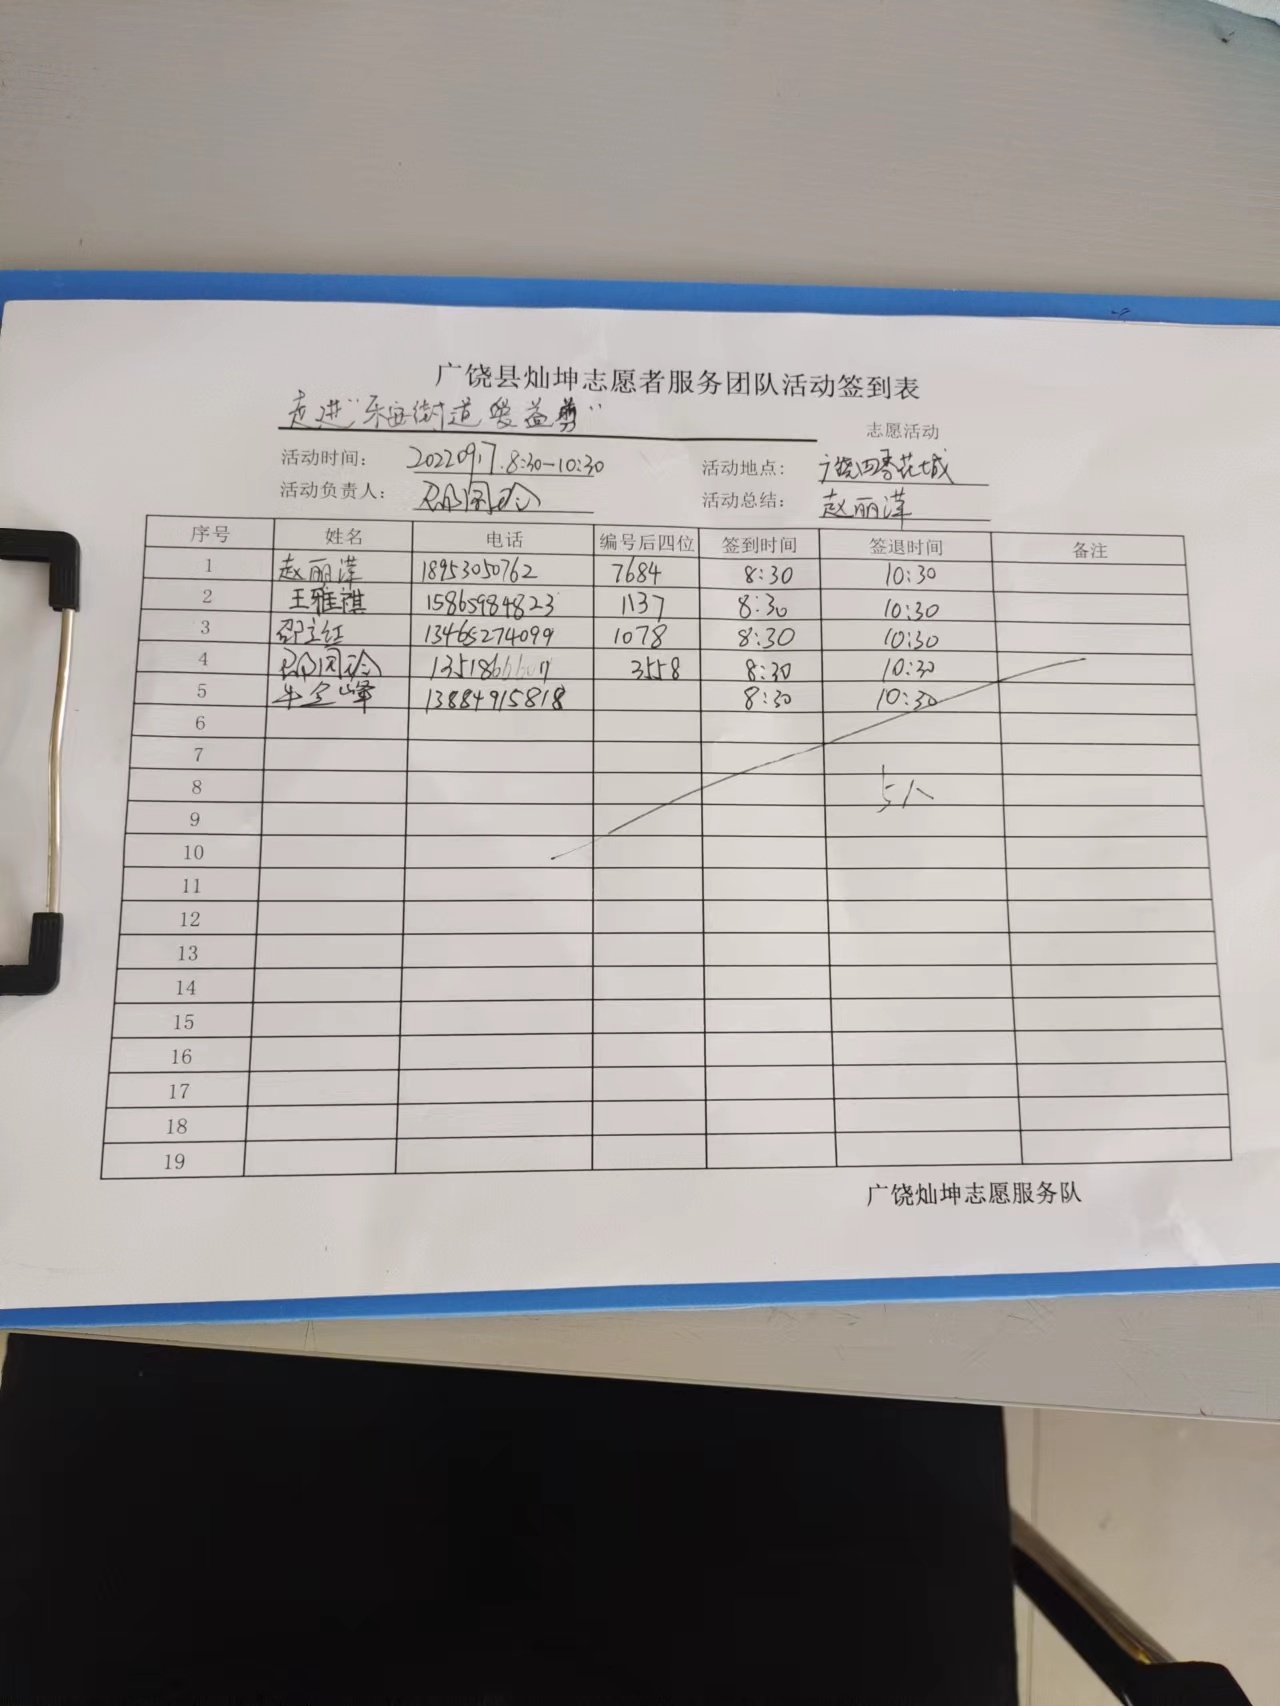 广饶县灿坤志愿者服务团队活动签到表
走进"乐安街道爱益剪" 志愿活动
活动时间： 2022.09.17. 8:30-10:30 活动地点： 广饶四季花城
活动负责人： 活动总结： 赵丽萍
序号 姓名 电话 编号后四位 签到时间 签退时间 备注
1 赵丽萍 18953050762 7684 8:30 10:30
2 王雅祺 15865984823 1137 8:30 10:30
3 邵立红 13465274099 1078 8:30 10:30
4 3558 8:30 10:30
5 牛全峰 13884915818 8:30 10:30
6
7
8 5人
9
10
11
12
13
14
15
16
17
18
19
广饶灿坤志愿服务队